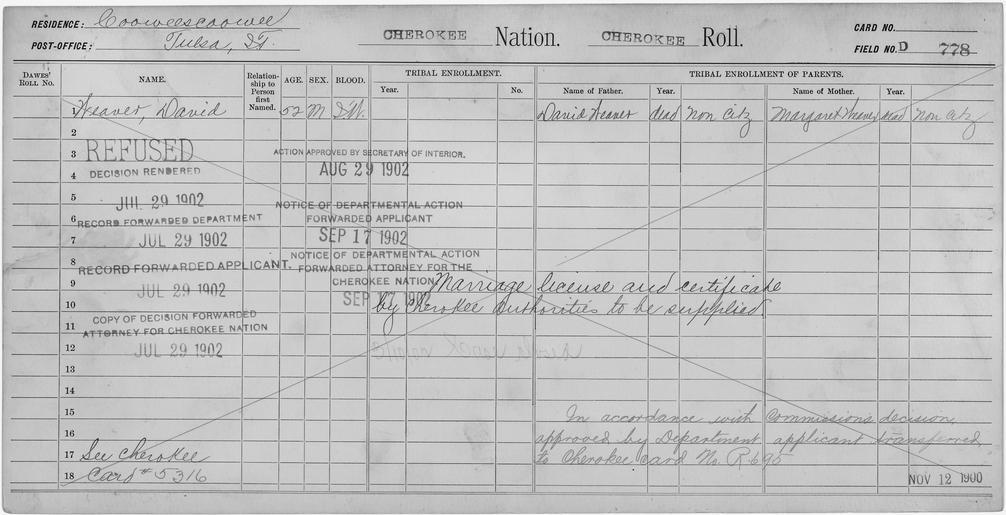 RESIDENCE: Cooweescoowee
POST-OFFICE: Tulsa, I.T.
CHEROKEE Nation. CHEROKEE Roll.
CARD NO.
FIELD NO. D 778
DAWES' ROLL NO.
NAME.
Relationship to Person first Named.
AGE.
SEX.
BLOOD.
TRIBAL ENROLLMENT.
Year.
No.
TRIBAL ENROLLMENT OF PARENTS.
Name of Father.
Year.
Name of Mother.
Year.
1 Weaver, David 52 M I.W. David Weaver dead Non Citz Margaret Weaver dead Non Citz
2
3 REFUSED
4 DECISION RENDERED
5 JUL 29 1902
6 RECORD FORWARDED DEPARTMENT
7 JUL 29 1902
8 RECORD FORWARDED APPLICANT.
9 JUL 29 1902
10
11 COPY OF DECISION FORWARDED
ATTORNEY FOR CHEROKEE NATION
12 JUL 29 1902
ACTION APPROVED BY SECRETARY OF INTERIOR.
AUG 29 1902
NOTICE OF DEPARTMENTAL ACTION
FORWARDED APPLICANT
SEP 17 1902
NOTICE OF DEPARTMENTAL ACTION
FORWARDED ATTORNEY FOR THE
CHEROKEE NATION
SEP 17 1902
Marriage license and certificate
by Cherokee Authorities to be supplied.
13
14
15 In accordance with Commission's decision,
16 approved by Department applicant transferred
17 See Cherokee to Cherokee card No. R-695
18 Card # 5316 NOV 12 1900